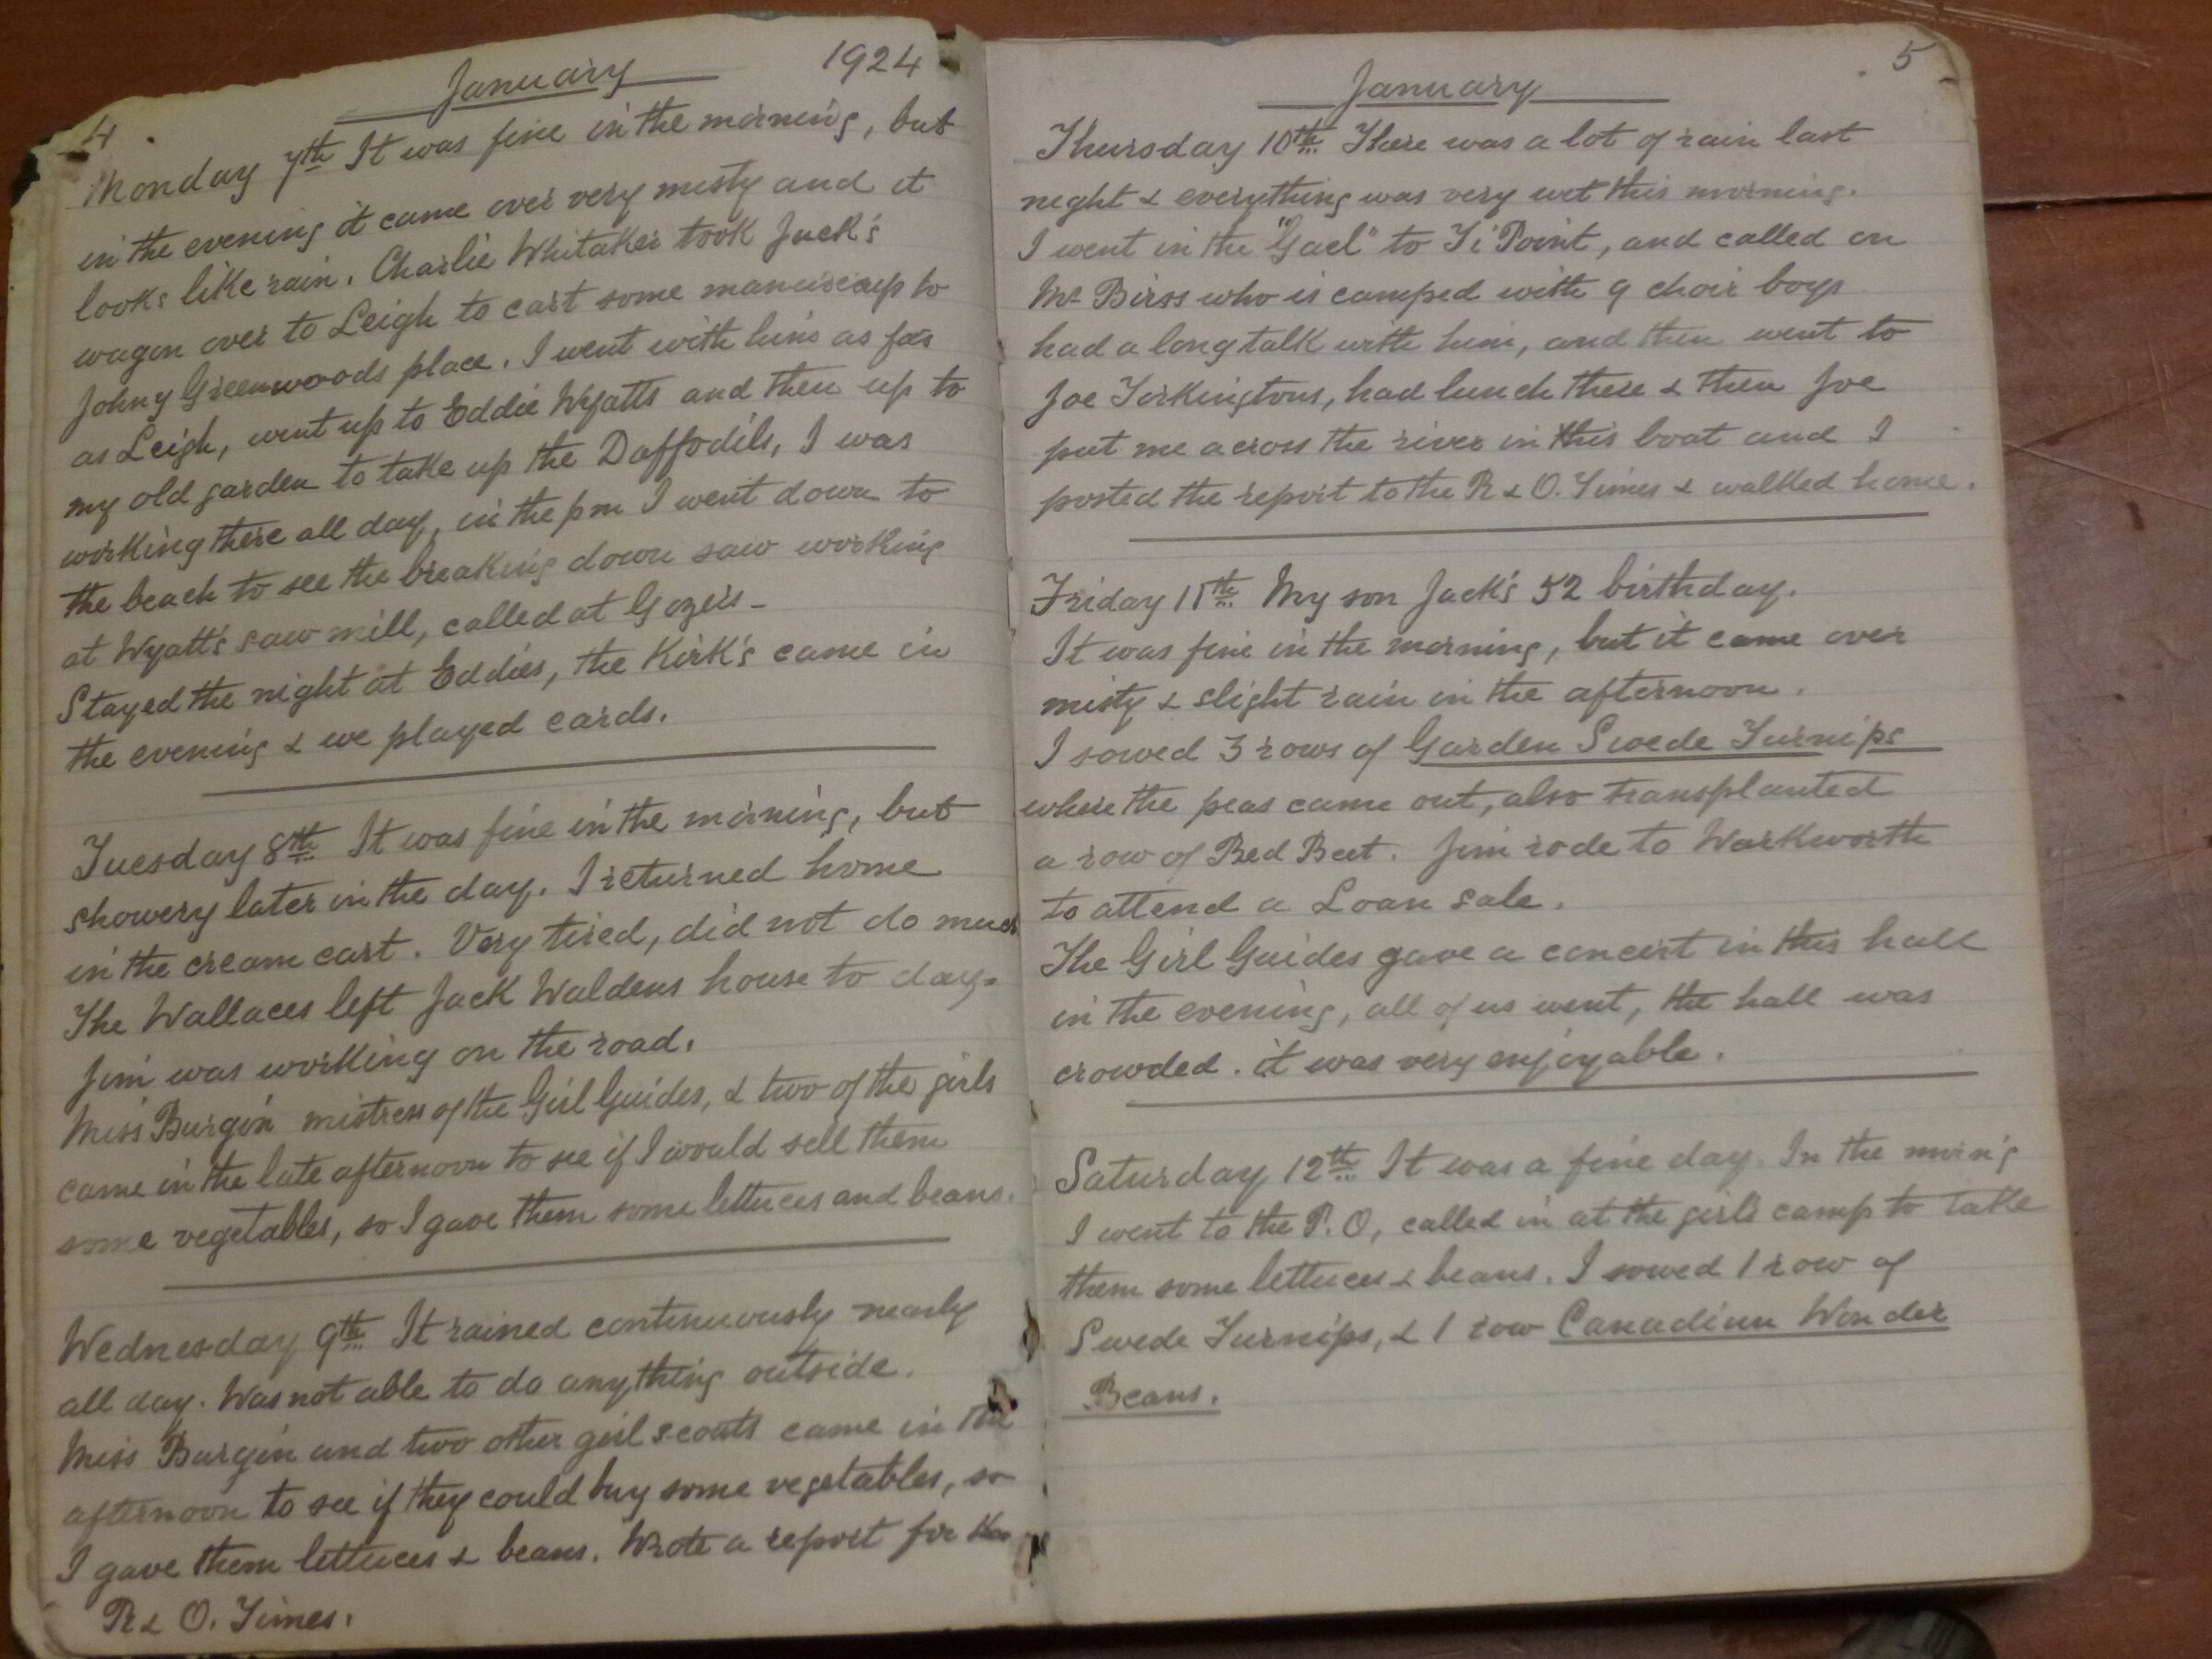 4
January 1924
Monday 7th It was fine in the morning, but
in the evening it came over very misty and it
looks like rain. Charlie Whitaker took Jack's
wagon over to Leigh to cart some manure up to
Johny Greenwoods place. I went with him as far
as Leigh, went up to Eddie Wyatts and then up to
my old garden to take up the Daffodils, I was
working there all day, in the pm I went down to
the beach to see the breaking down saw working
at Wyatt's saw mill, called at Gozers -
Stayed the night at Eddies, the Kirk's came in
the evening & we played cards.
Tuesday 8th It was fine in the morning, but
showery later in the day. I returned home
in the cream cart. Very tired, did not do much
The Wallaces left Jack Waldens house to day.
Jim was working on the road.
Miss Burgin mistress of the Girl Guides, & two of the girls
came in the late afternoon to see if I would sell them
some vegetables, so I gave them some lettuces and beans.
Wednesday 9th It rained continuously nearly
all day. Was not able to do anything outside.
Miss Burgin and two other girl scouts came in the
afternoon to see if they could buy some vegetables, so
I gave them lettuces & beans. Wrote a report for the
R & O. Times.
5
January
Thursday 10th There was a lot of rain last
night & everything was very wet this morning.
I went in the "Gael" to Ti Point, and called on
Mr Birss who is camped with 9 choir boys
had a long talk with him, and then went to
Joe Torkingtons, had lunch there & then Joe
put me across the river in his boat and I
posted the report to the R & O. Times & walked home.
Friday 11th My son Jack's 52 birthday.
It was fine in the morning, but it came over
misty & slight rain in the afternoon.
I sowed 3 rows of Garden Swede Turnips
where the peas came out, also transplanted
a row of Red Beet. Jim rode to Warkworth
to attend a Loan sale.
The Girl Guides gave a concert in this hall
in the evening, all of us went, the hall was
crowded. it was very enjoyable.
Saturday 12th It was a fine day. In the mornig
I went to the P.O, called in at the girls camp to take
them some lettuces & beans. I sowed 1 row of
Swede Turnips, & 1 row Canadian Wonder
Beans.